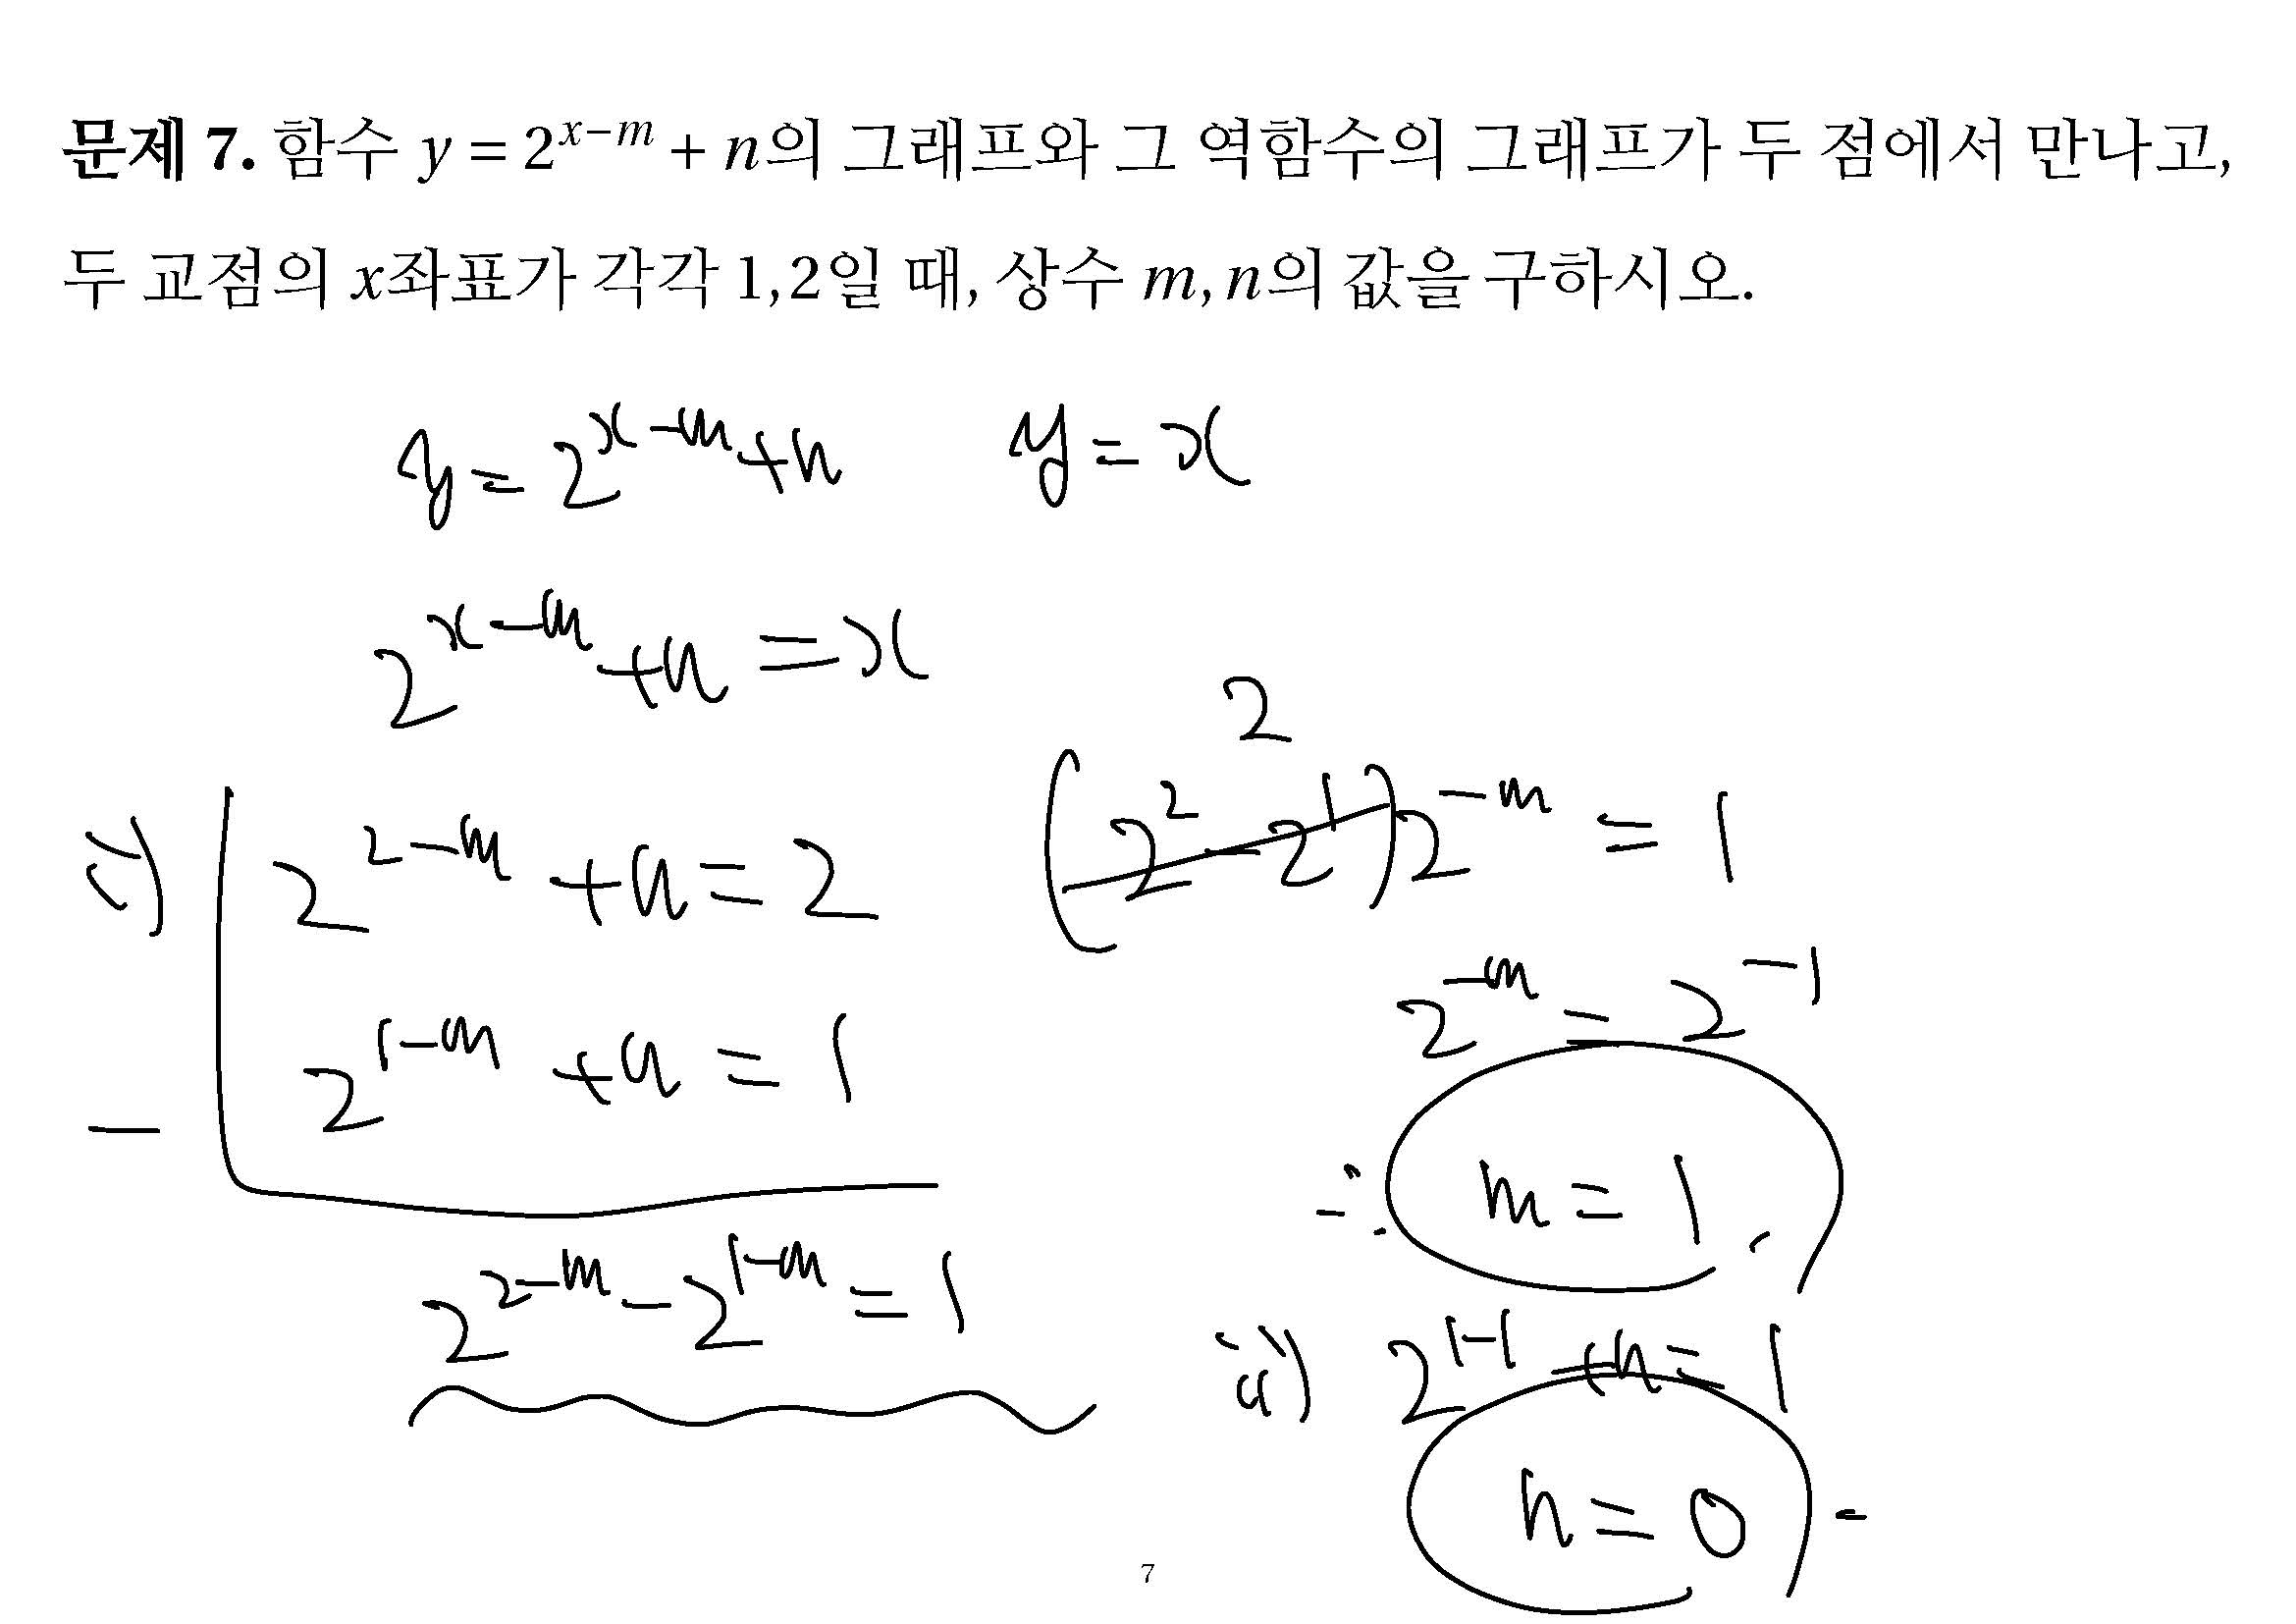 문제 7. 함수 y = 2^{x-m} + n의 그래프와 그 역함수의 그래프가 두 점에서 만나고,
두 교점의 x좌표가 각각 1,2일 때, 상수 m,n의 값을 구하시오.
y = 2^{x-m} + n y = x
2^{x-m} + n = x
i) 2^{2-m} + n = 2
2^{1-m} + n = 1
2^{2-m} - 2^{1-m} = 1
2
(2^2 - 2^1) 2^{-m} = 1
2^{-m} = 2^{-1}
∴ m = 1.
ii) 2^{1-1} + n = 1
n = 0
7